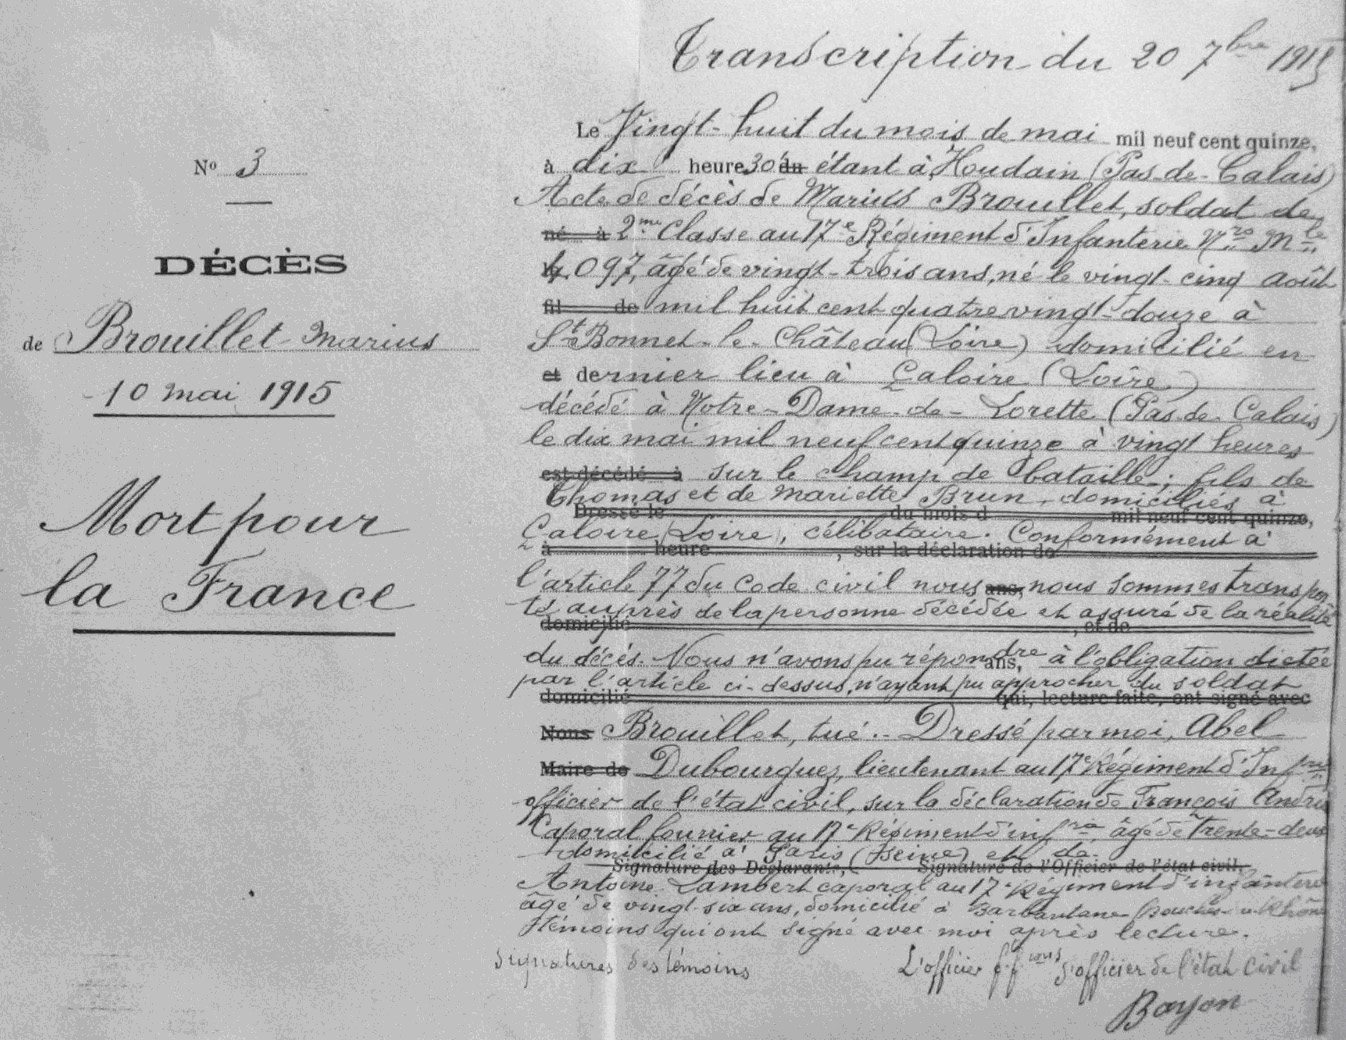 Transcription du 20 7bre 1915
Nº 3
DÉCÈS
de Brouillet Marius
10 mai 1915
Mort pour
la France
Le Vingt-huit du mois de mai mil neuf cent quinze,
à dix heure 30' du étant à Houdain (Pas-de-Calais)
Acte de décès de Marius Brouillet, soldat de
né à 2me Classe au 17e Régiment d'Infanterie Nro Mle
4,097, âgé de vingt-trois ans, né le vingt-cinq août
fil de mil huit cent quatre vingt-douze à
St Bonnet-le-Château (Loire) domicilié en
et dernier lieu à Caloire (Loire)
décédé à Notre-Dame-de-Lorette (Pas-de-Calais)
le dix mai mil neuf cent quinze à vingt heures
est décédé à sur le champ de bataille; fils de
Thomas et de Mariette Brun domiciliés à
Dressé le du mois d mil neuf cent quinze,
Caloire (Loire), célibataire. Conformément à
à heure , sur la déclaration de
l'article 77 du Code civil nous ans, nous sommes transpor
té, auprès de la personne décédée et assuré de la réalité
domicilié , et de
du décès. Nous n'avons pu répondre ans, à l'obligation dictée
par l'article ci-dessus, n'ayant pu approcher du soldat
domicilié qui, lecture faite, ont signé avec
Nous Brouillet, tué.- Dressé par moi, Abel
Maire de Dubourguez, lieutenant au 17e Régiment d'Infrie
officier de l'état civil, sur la déclaration de François André
Caporal fourrier au 17e Régiment d'infrie âgé de trente-deux
domicilié à Paris (Seine) et de
Signature des Déclarants, Signature de l'Officier de l'état civil.
Antoine Lambert caporal au 17e Régiment d'infanterie
âgé de vingt-six ans, domicilié à Barbantane (Bouches-du-Rhône
témoins qui ont signé avec moi après lecture.
signatures des témoins L'officier f.f. d'officier de l'état civil
Bayon